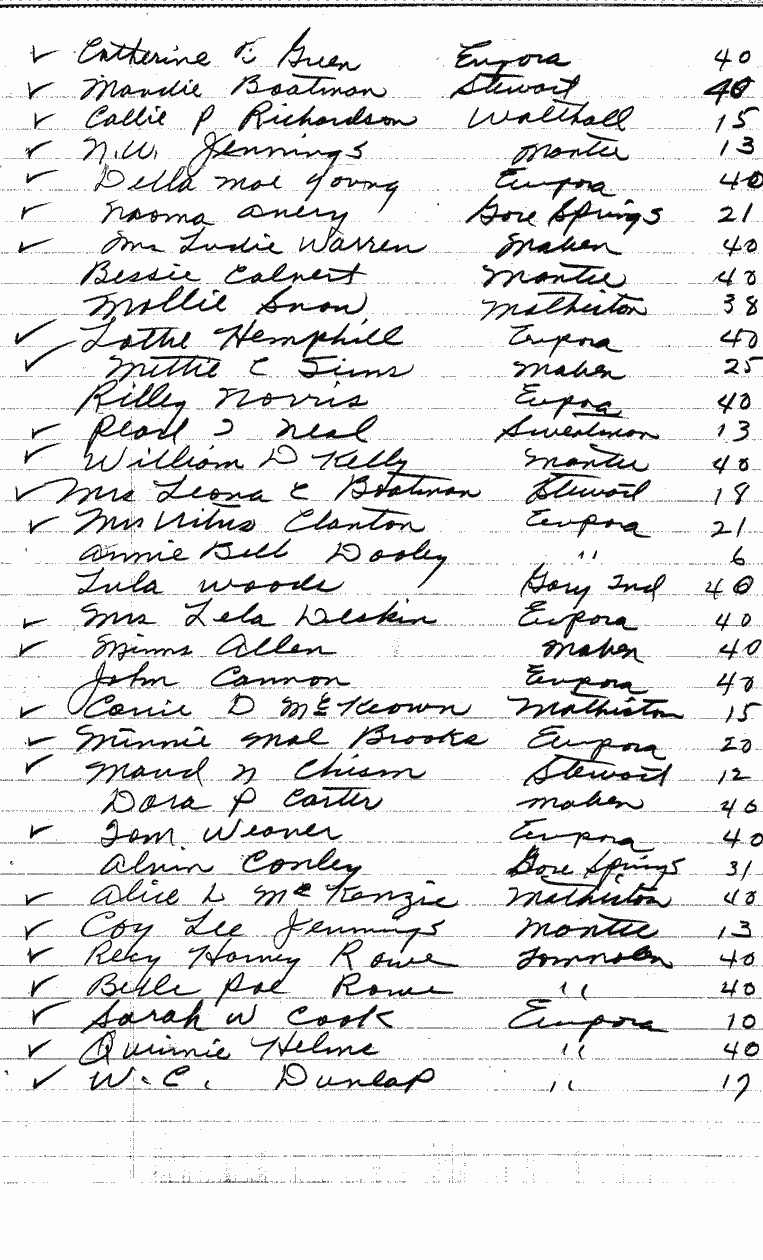 ✓ Catherine F. Green Eupora 40
✓ Maudie Boatman Stewart 40
✓ Callie P Richardson Walthall 15
✓ N.W. Jennings Mantee 13
✓ Della Mae Young Eupora 40
✓ Naoma Avery Gore Springs 21
✓ Mrs Ludie Warren Maben 40
Bessie Calvert Mantee 40
Mollie Snow Mathiston 38
✓ Lottie Hemphill Eupora 40
✓ Mittie C Sims Maben 25
Rilley Norris Eupora 40
✓ Pearl Neal Sweatman 13
✓ William D Kelly Mantee 40
✓ Mrs Leona C Boatman Stewart 18
✓ Mrs Vitus Clanton Eupora 21
Annie Bell Dooley " 6
Lula Woods Gary Ind 40
✓ Mrs Lela Deskin Eupora 40
✓ Minns Allen Maben 40
John Cannon Eupora 40
✓ Carrie D McKeown Mathiston 15
✓ Minnie Mae Brooks Eupora 20
✓ Maud N Chism Stewart 12
Dora P Carter Maben 40
✓ Tom Weaver Eupora 40
Alvin Conley Gore Springs 31
✓ Alice L McKenzie Mathiston 40
✓ Coy Lee Jennings Mantee 13
✓ Harvey Rowe Tomnolen 40
✓ Belle Rowe " 40
✓ Sarah W Cook Eupora 10
✓ Quinnie Helms " 40
✓ W.C. Dunlap " 17